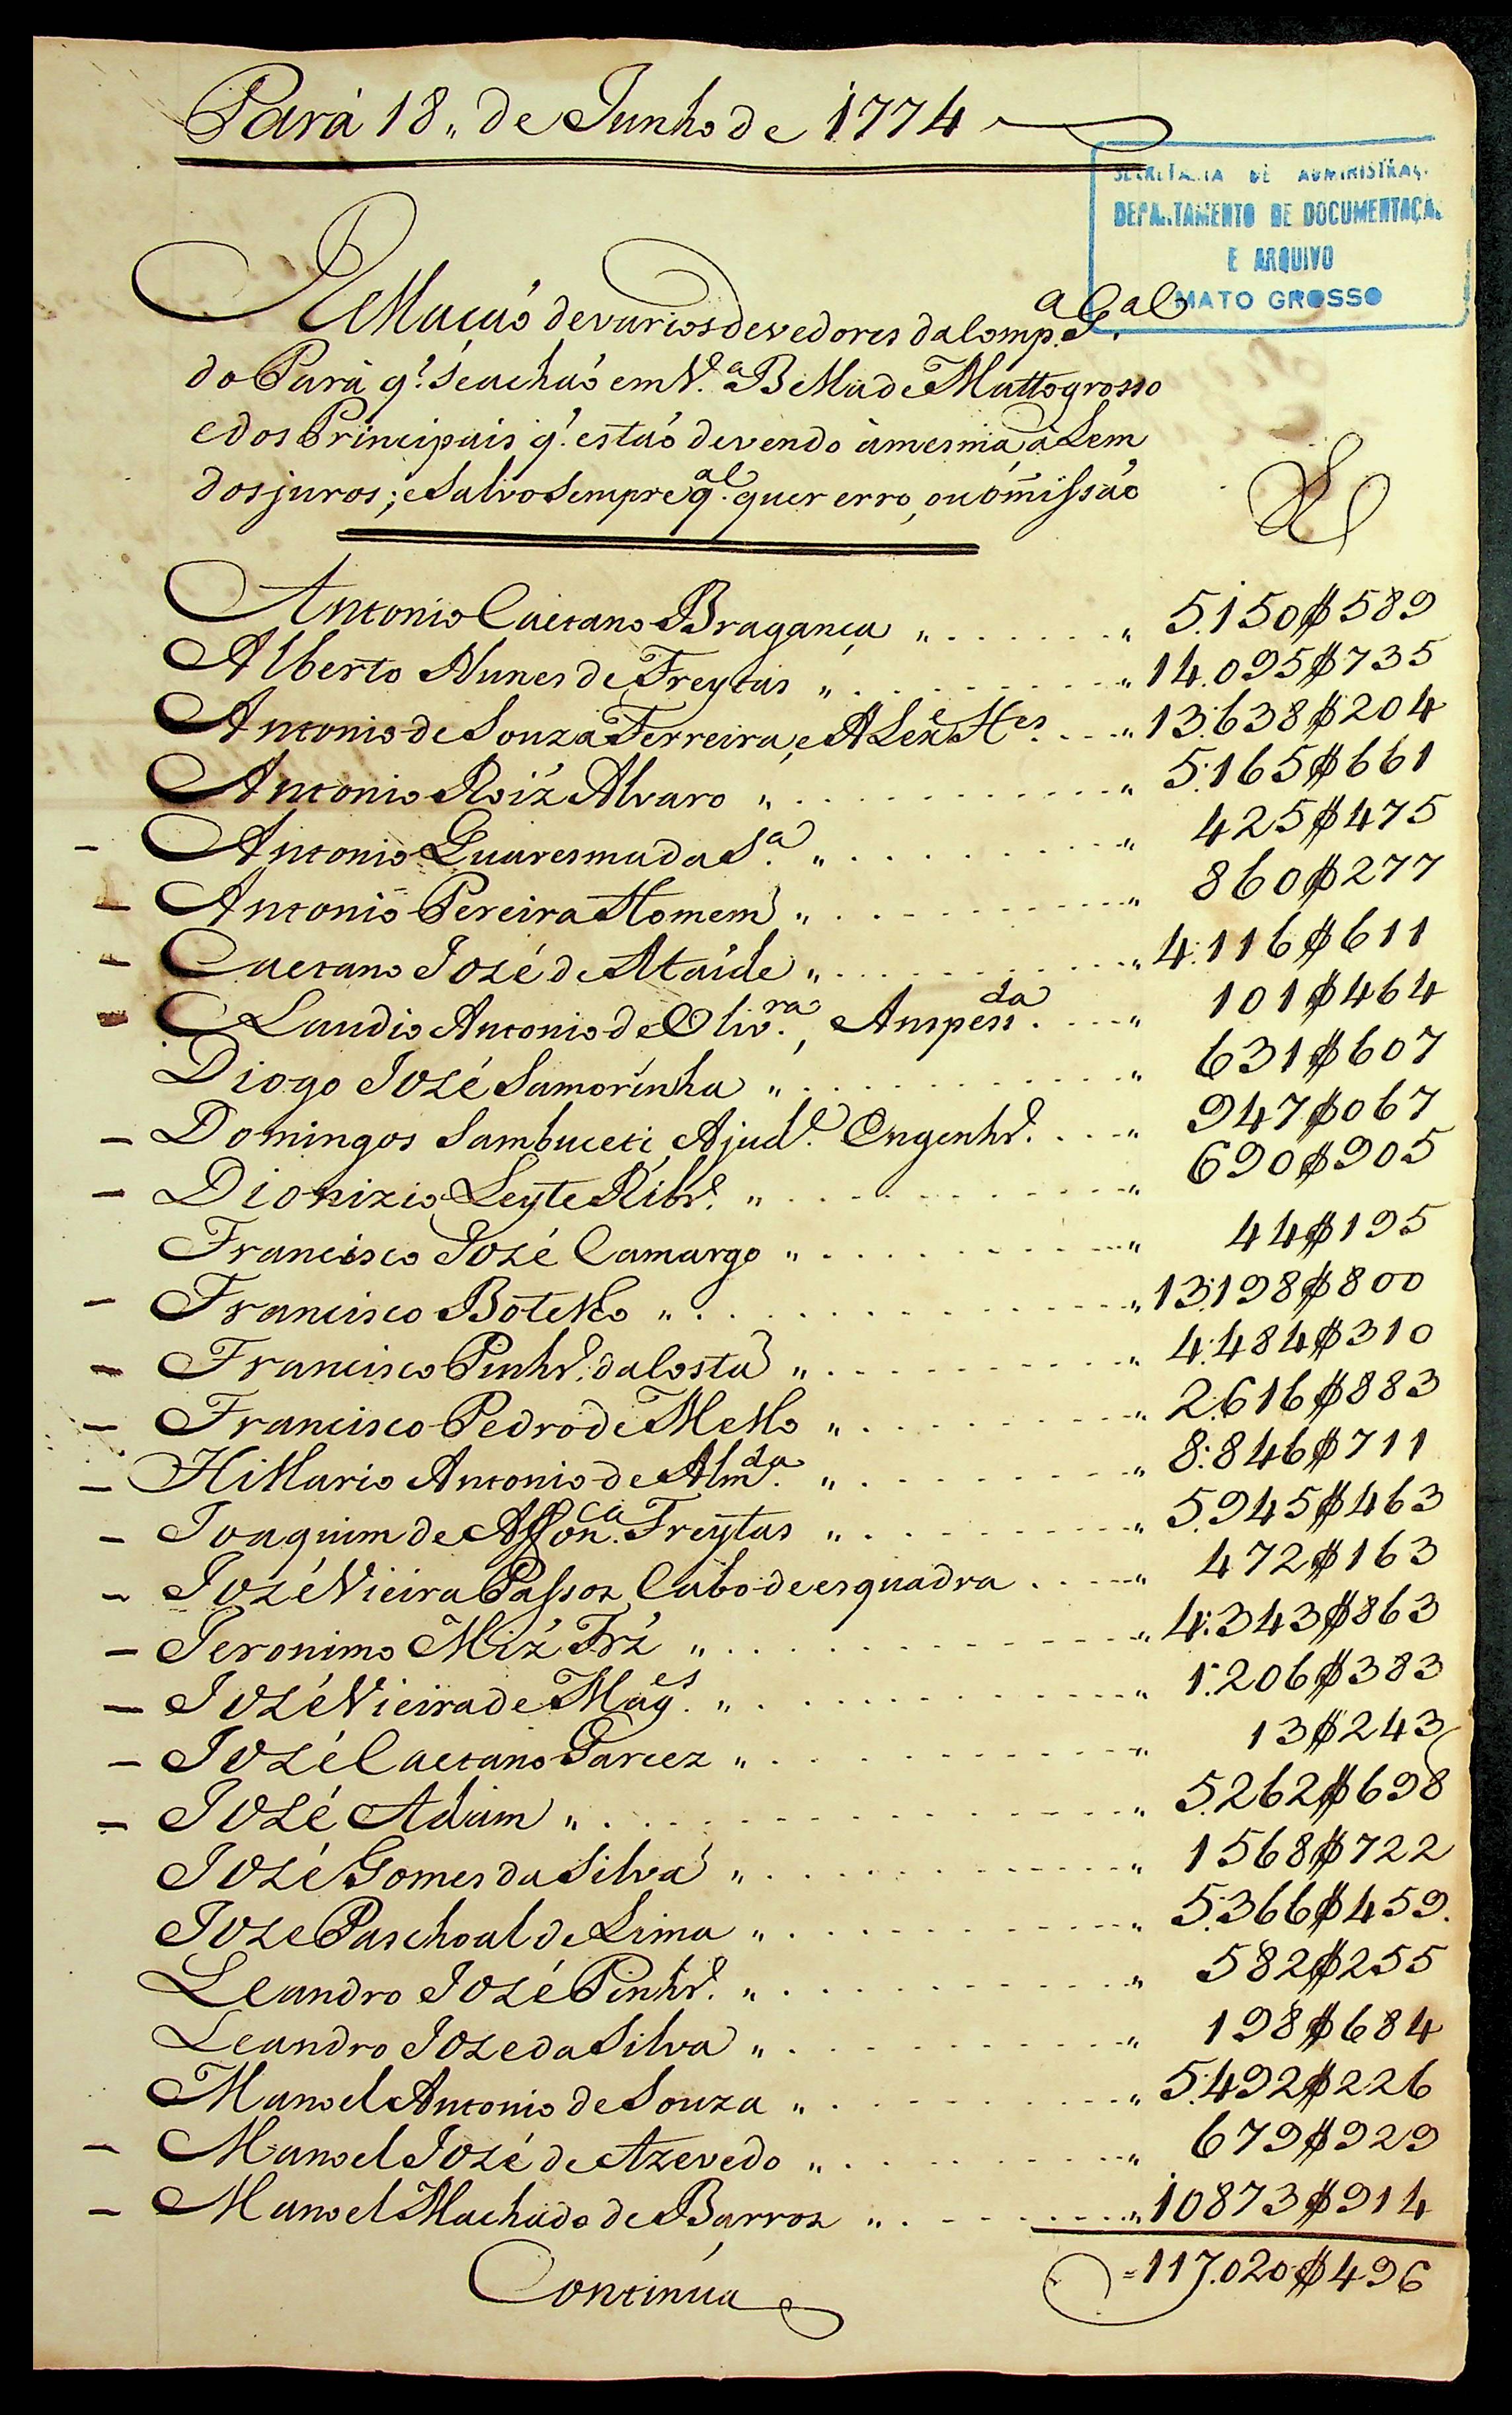 Pará 18,, de Junho de 1774
SECRETARIA DE ADMINISTRAÇ
DEPARTAMENTO DE DOCUMENTAÇA
E ARQUIVO
MATO GROSSO
Rellaçaõ de varios devedores da Comp.ª G.al
do Pará q.' se achaõ em V.ª Bella de Mattogrosso
e dos Principais q.' estaõ devendo à mesma álem
dos juros; e Salvo Sempre q.al quer erro, ou omissaõ
Antonio Caetano Bragança ,, . . . . . . ,, 5.150$589
Alberto Nunes de Freytas ,, . . . . . . ,, 14.095$735
Antonio de Souza Ferreira, e Alex.e H.es . . . ,, 13:638$204
Antonio Roiz' Alvaro ,, . . . . . . ,, 5:165$661
Antonio Quaresma da S.ª ,, . . . . . . ,, 425$475
Antonio Pereira Homem ,, . . . . . . ,, 860$277
Caetano José de Ataíde ,, . . . . . . ,, 4:116$611
Claudio Antonio de Oliv.ra, Anspess.da . . . ,, 101$464
Diogo José Samorinha ,, . . . . . . ,, 631$607
Domingos Sambuceti, Ajud.e Engenhr.o . . . ,, 947$067
Dionizio Leyte Ribr.o ,, . . . . . . ,, 690$905
Francisco José Camargo ,, . . . . . . ,, 44$195
Francisco Botelho ,, . . . . . . ,, 13:198$800
Francisco Pinhr.o da Costa ,, . . . . . . ,, 4:484$310
Francisco Pedro de Mello ,, . . . . . . ,, 2:616$883
Hillario Antonio de Alm.da ,, . . . . . . ,, 8:846$711
Joaquim de Affon.ca Freytas ,, . . . . . . ,, 5.945$463
José Vieira Passos, Cabo de esquadra . . . ,, 472$163
Jeronimo Miz' Frz' ,, . . . . . . ,, 4:343$863
José Vieira de Mag.es ,, . . . . . . ,, 1:206$383
José Caetano Garcez ,, . . . . . . ,, 13$243
José Adam ,, . . . . . . ,, 5.262$698
José Gomes da Silva ,, . . . . . . ,, 1568$722
Joze Paschoal de Lima ,, . . . . . . ,, 5:366$459.
Leandro José Pinhr.o ,, . . . . . . ,, 582$255
Leandro Joze da Silva ,, . . . . . . ,, 198$684
Manoel Antonio de Souza ,, . . . . . . ,, 5:492$226
Manoel José de Azevedo ,, . . . . . . ,, 679$929
Manoel Machado de Barros ,, . . . . . . ,, 10873$914
Continúa =117.020$496